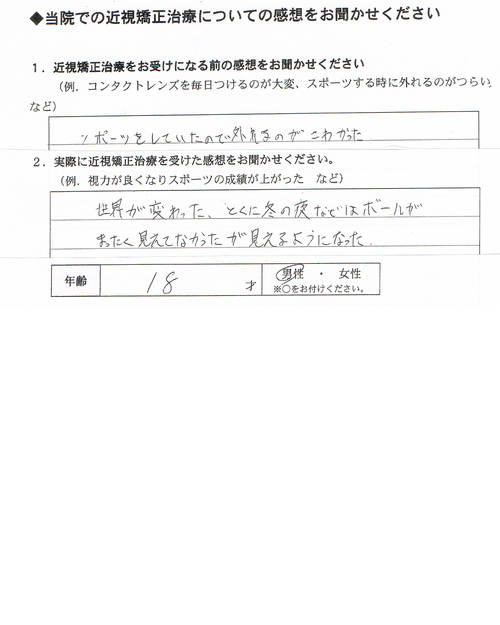 ◆当院での近視矯正治療についての感想をお聞かせください
1．近視矯正治療をお受けになる前の感想をお聞かせください
（例．コンタクトレンズを毎日つけるのが大変、スポーツする時に外れるのがつらい
など）
スポーツをしていたので外れるのがこわかった
2．実際に近視矯正治療を受けた感想をお聞かせください。
（例．視力が良くなりスポーツの成績が上がった　など）
世界が変わった、とくに冬の夜などはボールが
まったく見えてなかったが見えるようになった.
年齢 18 才 男性 ・ 女性
※○をお付けください。